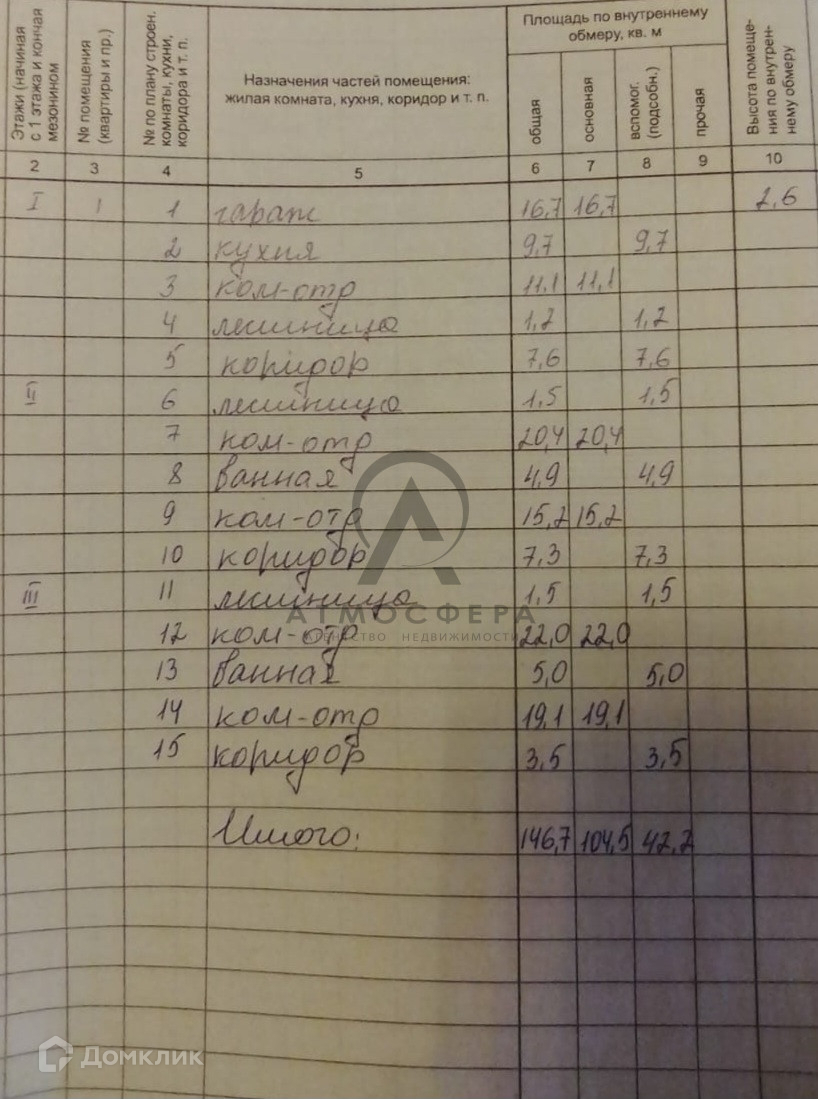 Этажи (начиная
с 1 этажа и кончая
мезонином
№ помещения
(квартиры и пр.)
№ по плану строен.
комнаты, кухни,
коридора и т. п.
Назначения частей помещения:
жилая комната, кухня, коридор и т. п.
Площадь по внутреннему
обмеру, кв. м
общая
основная
вспомог.
(подсобн.)
прочая
Высота помеще-
ния по внутрен-
нему обмеру
2 3 4 5 6 7 8 9 10
I 1 1 гараж 16,7 16,7 2,6
2 кухня 9,7 9,7
3 ком-отр 11,1 11,1
4 лестница 1,2 1,2
5 коридор 7,6 7,6
II 6 лестница 1,5 1,5
7 ком-отр 20,4 20,4
8 ванная 4,9 4,9
9 ком-отр 15,2 15,2
10 коридор 7,3 7,3
III 11 лестница 1,5 1,5
АТМОСФЕРА
АГЕНТСТВО НЕДВИЖИМОСТИ
12 ком-отр 22,0 22,0
13 ванная 5,0 5,0
14 ком-отр 19,1 19,1
15 коридор 3,5 3,5
Итого: 146,7 104,5 42,2
Домклик